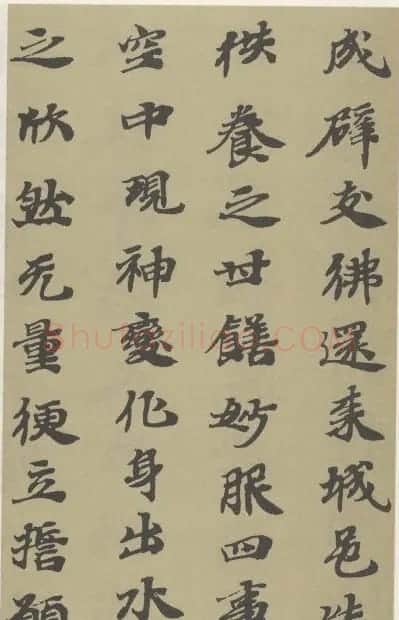 成辟支佛還来城邑
供養之甘饍妙服四事
空中現神變化身出水
之欣然无量便立誓願